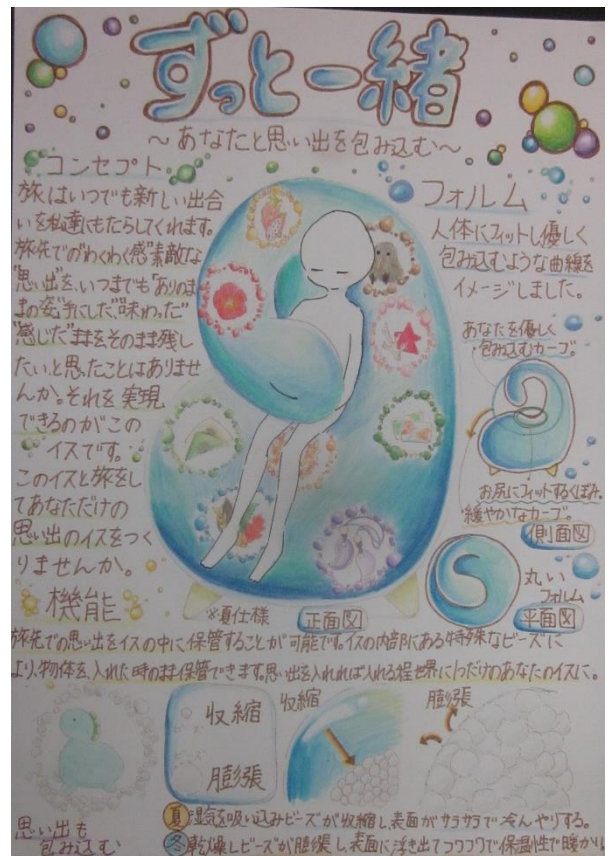 ずっと一緒
〜あなたと思い出を包み込む〜
コンセプト
旅はいつでも新しい出合
いを私達にもたらしてくれます。
旅先での"わくわく感"素敵な
"思い出"を、いつまでも"ありのま
まの姿"手にした"味わった"
"感じた"ままをそのまま残し
たい、と思ったことはありませ
んか。それを実現
できるのがこの
イスです。
このイスと旅をし
てあなただけの
思い出のイスをつく
りませんか。
フォルム
人体にフィットし優しく
包み込むような曲線を
イメージしました。
あなたを優しく
包み込むカーブ。
お尻にフィットするくぼみ。
緩やかなカーブ。
側面図
丸い
フォルム
平面図
※夏仕様
正面図
機能
旅先での思い出をイスの中に保管することが可能です。イスの内部にある特殊なビーズに
より、物体を入れた時のまま保管できます。思い出を入れれば入れる程世界に1つだけのあなたのイスに。
収縮
膨張
収縮
膨張
思い出も
包み込む
夏 湿気を吸い込みビーズが収縮し、表面がサラサラで冷んやりする。
冬 乾燥しビーズが膨張し、表面に浮き出てフワフワで保温性で暖かい